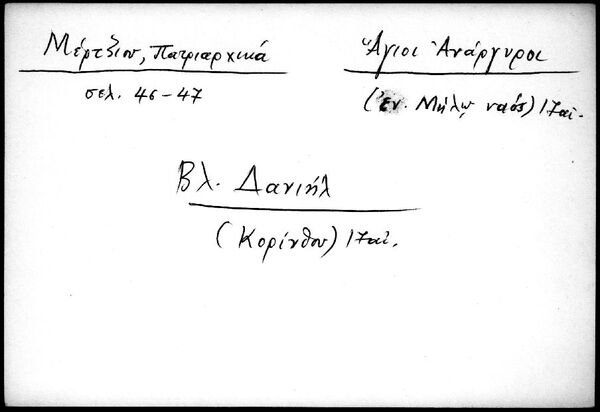 Μέρτζιου, Πατριαρχικά
σελ. 46-47
Ἅγιοι Ἀνάργυροι
(ἐν Μήλῳ ναός) 17 αἰ.
Βλ. Δανιήλ
(Κορίνθου) 17 αἰ.